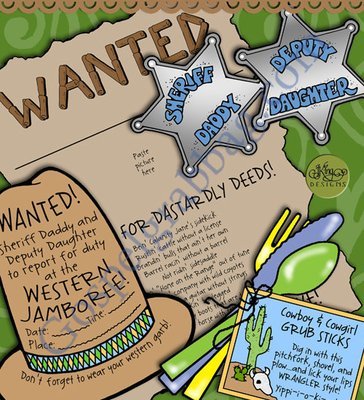 WANTED
SHERIFF
DADDY
DEPUTY
DAUGHTER
Paste
picture
here
KingCo
DESIGNS
FOR DASTARDLY DEEDS!
Being Calamity Jane's sidekick
Rustlin' cattle without a license
Brandin' bulls that ain't her own
Barrel racin' without a barrel
Not ridin' sidesaddle
"Home on the Range" out of tune
company with wild coyotes
guitar without strings
WANTED!
Sheriff Daddy and
Deputy Daughter
to report for duty
at the
WESTERN
JAMBOREE!
Date: Time:
Place:
Don't forget to wear your western garb!
Cowboy & Cowgirl
GRUB STICKS
Dig in with this
pitchfork, shovel, and
plow...and lick your lips
WRANGLER style!
Yippi-i-o-ki